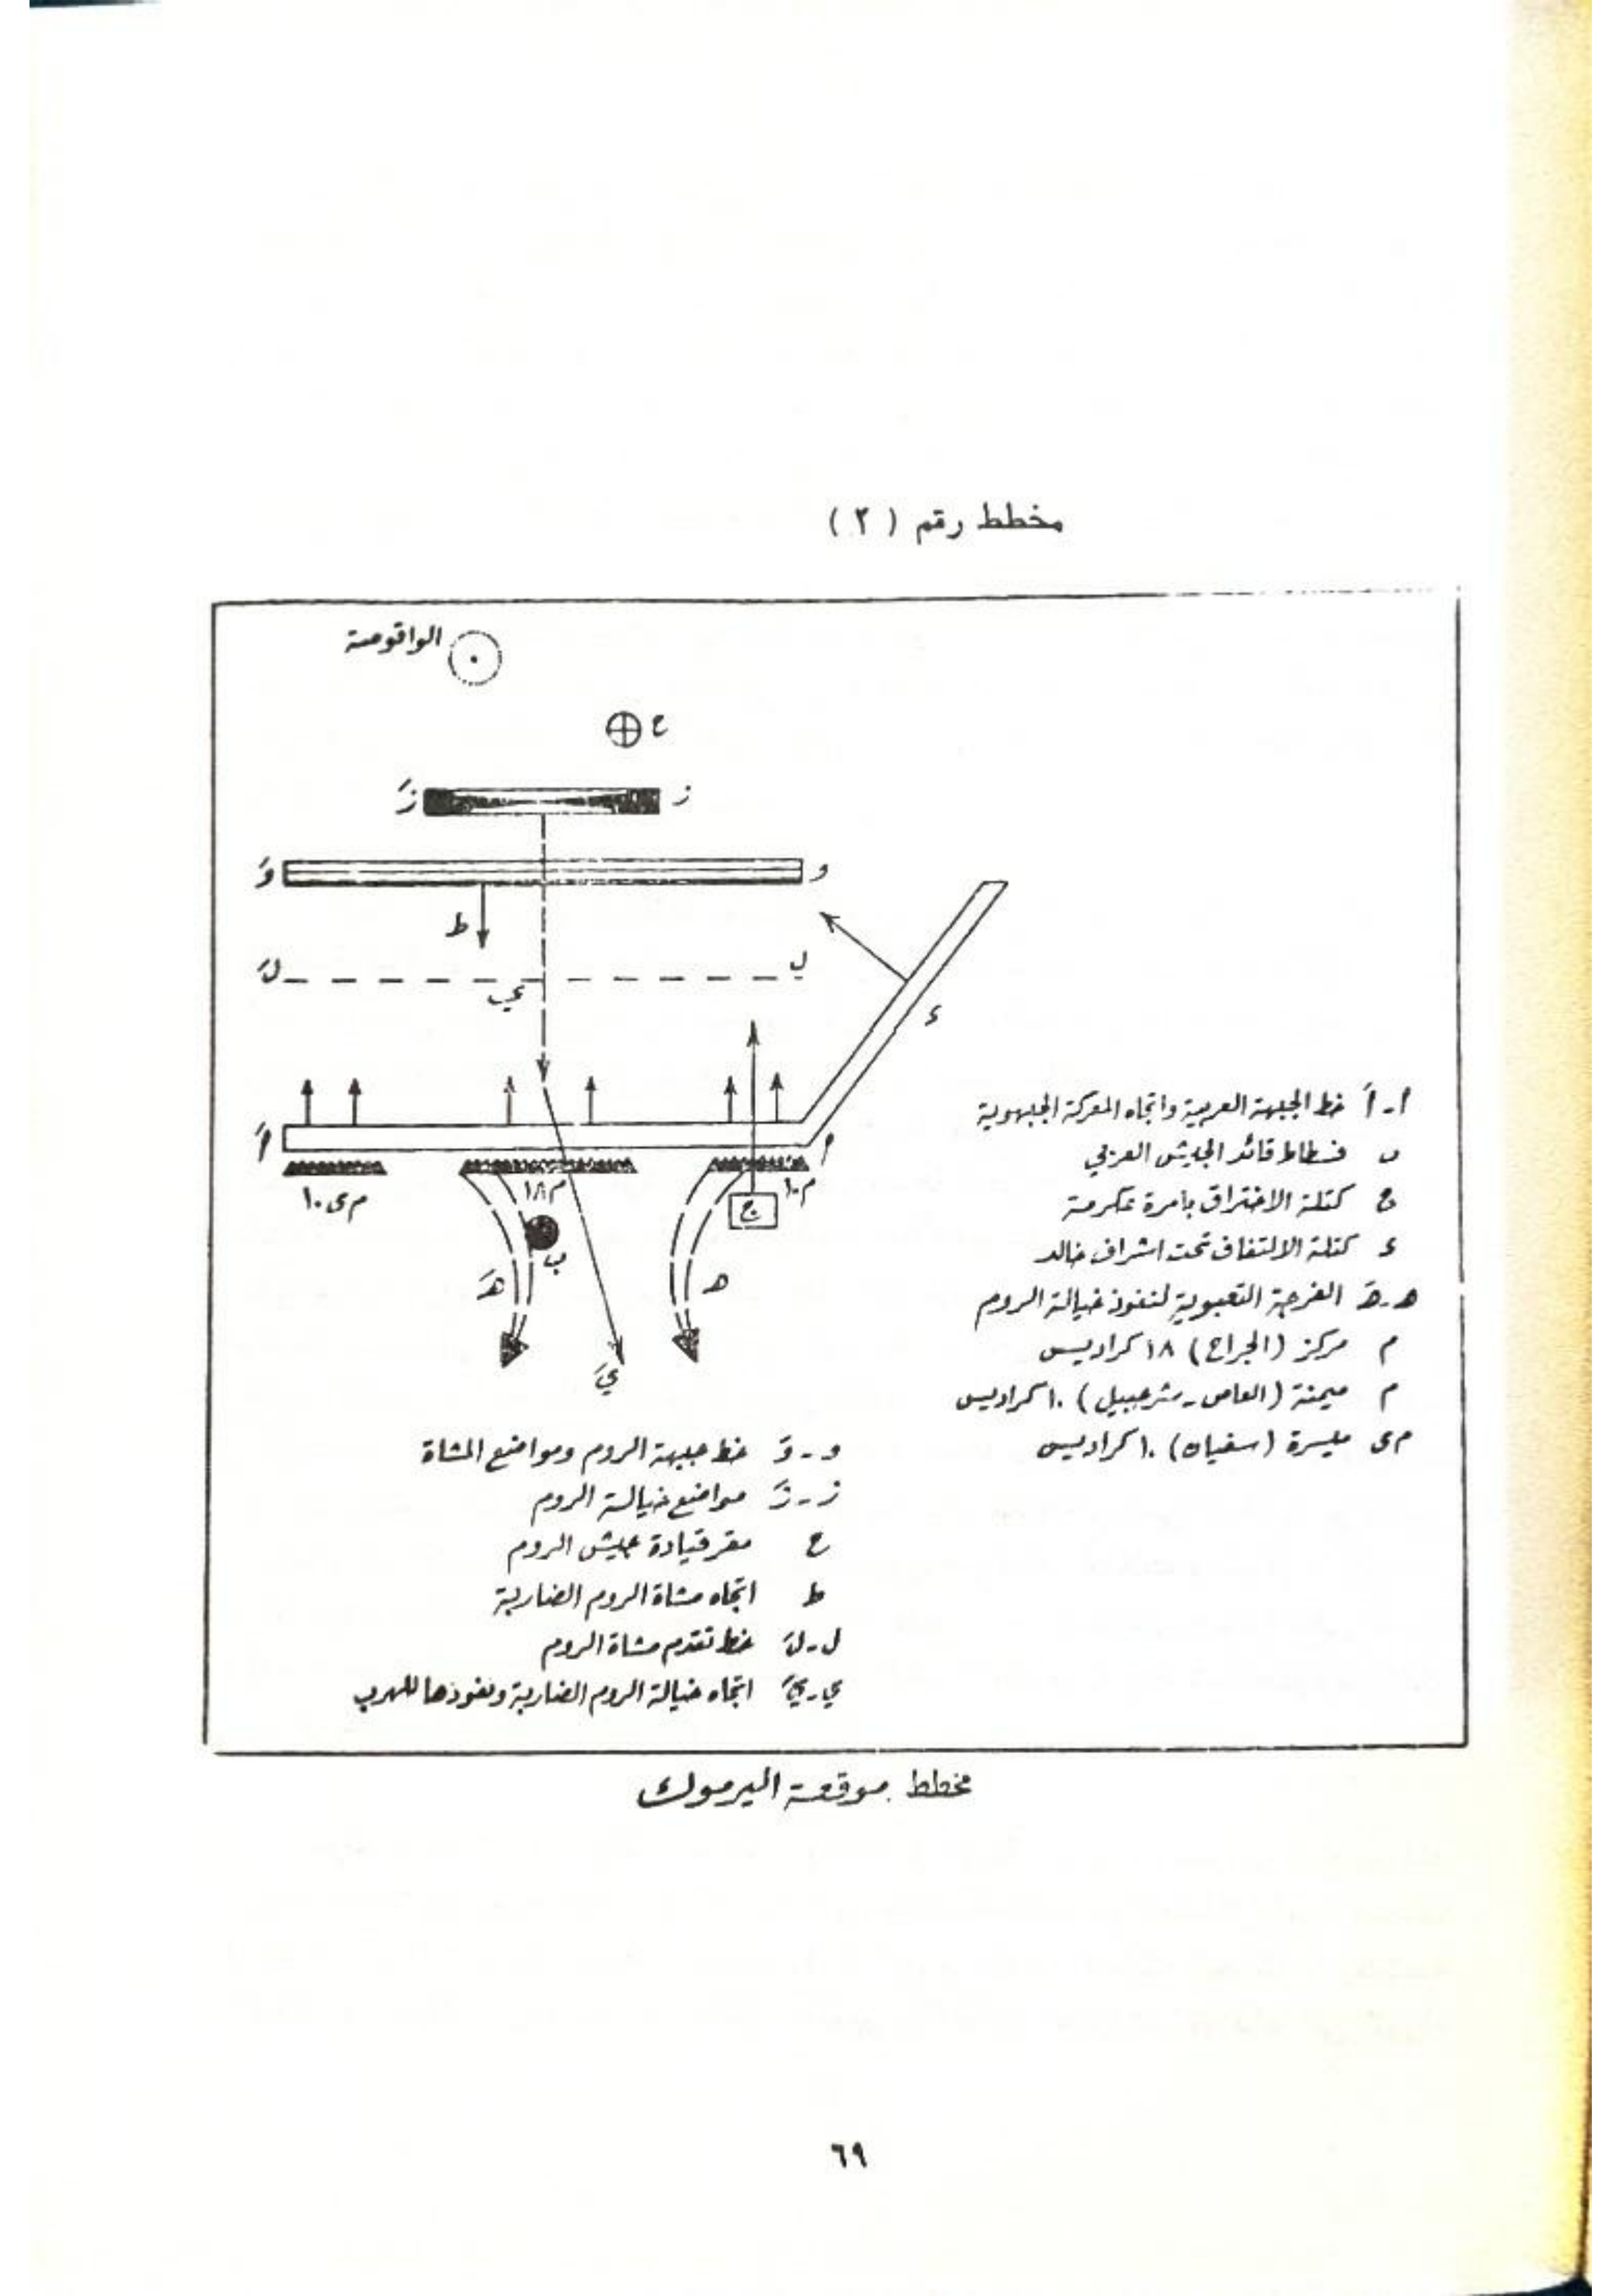 مخطط رقم (٢)
الواقوصة
ح
زَ
ز
وَ
و
ط
لَ
ل
ي
ء
أَ
أ
م ى ١٠
م ١٨
م ١٠
ج
ب
هَ
ه
يَ
أ - أَ خط الجبهة العربية واتجاه المعركة الجبهوية
ب فسطاط قائد الجيش العربي
ج كتلة الاختراق بامرة عكرمة
ء كتلة الالتفاف تحت اشراف خالد
ه - هَ الفرجة التعبوية لنفوذ خيالة الروم
م مركز (الجراح) ١٨ كراديس
م ميمنة (العاص - شرحبيل) ١٠ كراديس
م ى ميسرة (سفيان) ١٠ كراديس
و - وَ خط جبهة الروم ومواضع المشاة
ز - زَ مواضع خيالة الروم
ح مقر قيادة جيش الروم
ط اتجاه مشاة الروم الضاربة
ل - لَ خط تقدم مشاة الروم
ي - يَ اتجاه خيالة الروم الضاربة ونفوذها للهرب
مخطط موقعة اليرموك
٦٩